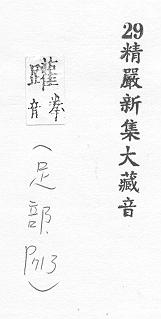 29精嚴新集大藏音
拳音
(足部P713)